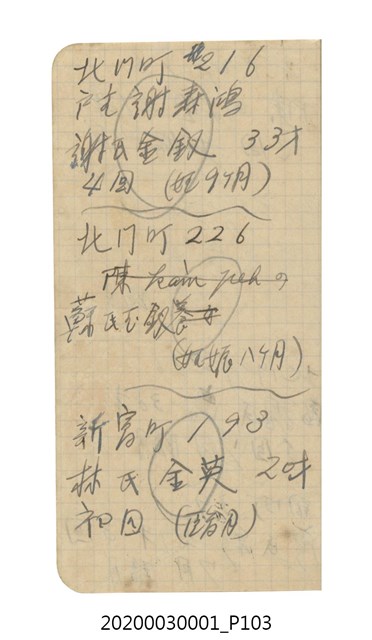 北门町 216
戸主 謝森鴻
謝氏金釵 33才
4回 (妊9ヶ月)
北门町 226
陳 の
蘇氏玉釵養女
(妊娠八ヶ月)
新富町 193
林氏金英 20才
初回 (臨月)
20200030001_P103